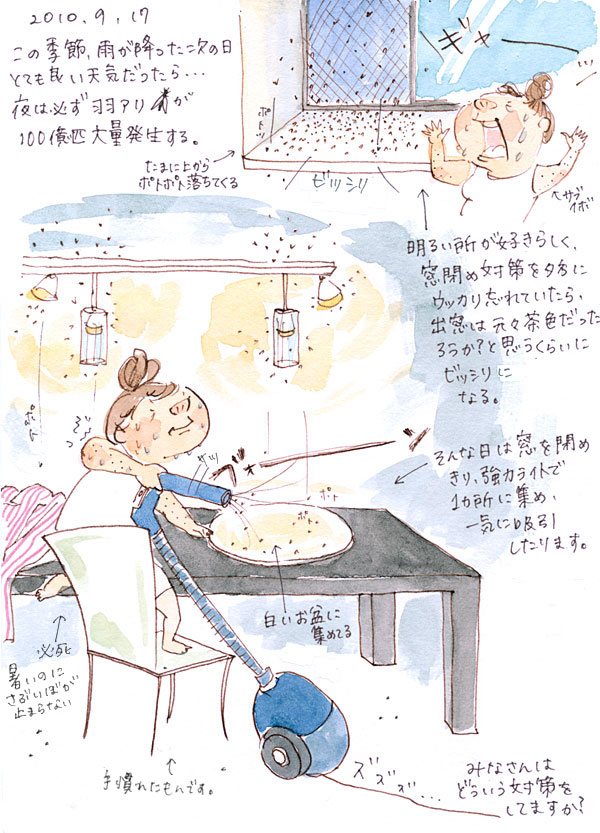 2010.9.17
この季節、雨が降った次の日
とても良い天気だったら...
夜は必ず羽アリ が
100億匹大量発生する。
たまに上から
ポトポト落ちてくる
ポトッ
ビッシリ
ギャー
サブイボ
明るい所が好きらしく、
窓閉め対策を夕方に
ウッカリ忘れていたら、
出窓は元々茶色だった
ろうか?と思うくらいに
ビッシリに
なる。
そんな日は窓を閉め
きり、強力ライトで
1カ所に集め、
一気に吸引
したります。
ポト
ポト
ポト
白いお盆に
集めてる
必死
暑いのに
さぶいぼが
止まらない
手慣れたもんです。
ズズズ...
みなさんは
どういう対策を
してますか?